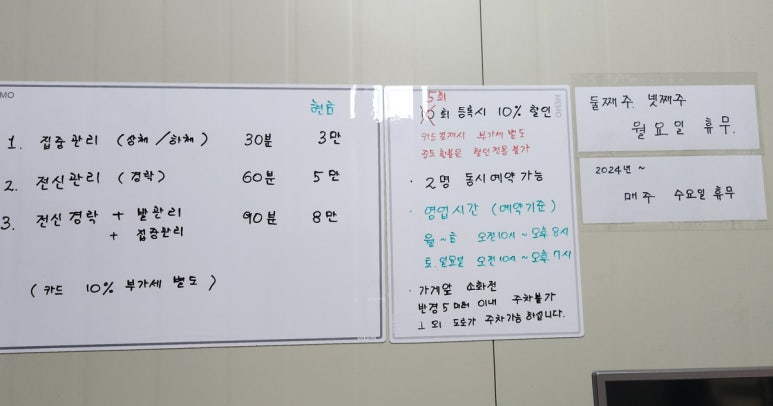 MO
현금
1. 집중관리 (상체/하체) 30분 3만
2. 전신관리 (경락) 60분 5만
3. 전신경락 + 발관리 90분 8만
+ 집중관리
(카드 10% 부가세 별도)
MEMO
5회
10회 등록시 10% 할인
카드결제시 부가세 별도
중도환불은 할인적용 불가
· 2명 동시예약 가능
· 영업시간 (예약기준)
월~금 오전10시~오후8시
토.일요일 오전10시~오후7시
· 가게앞 소화전
반경 5미터 이내 주차불가
그 외 도로가 주차가능하십니다.
둘째주. 넷째주
월요일 휴무.
2024년~
매주 수요일 휴무